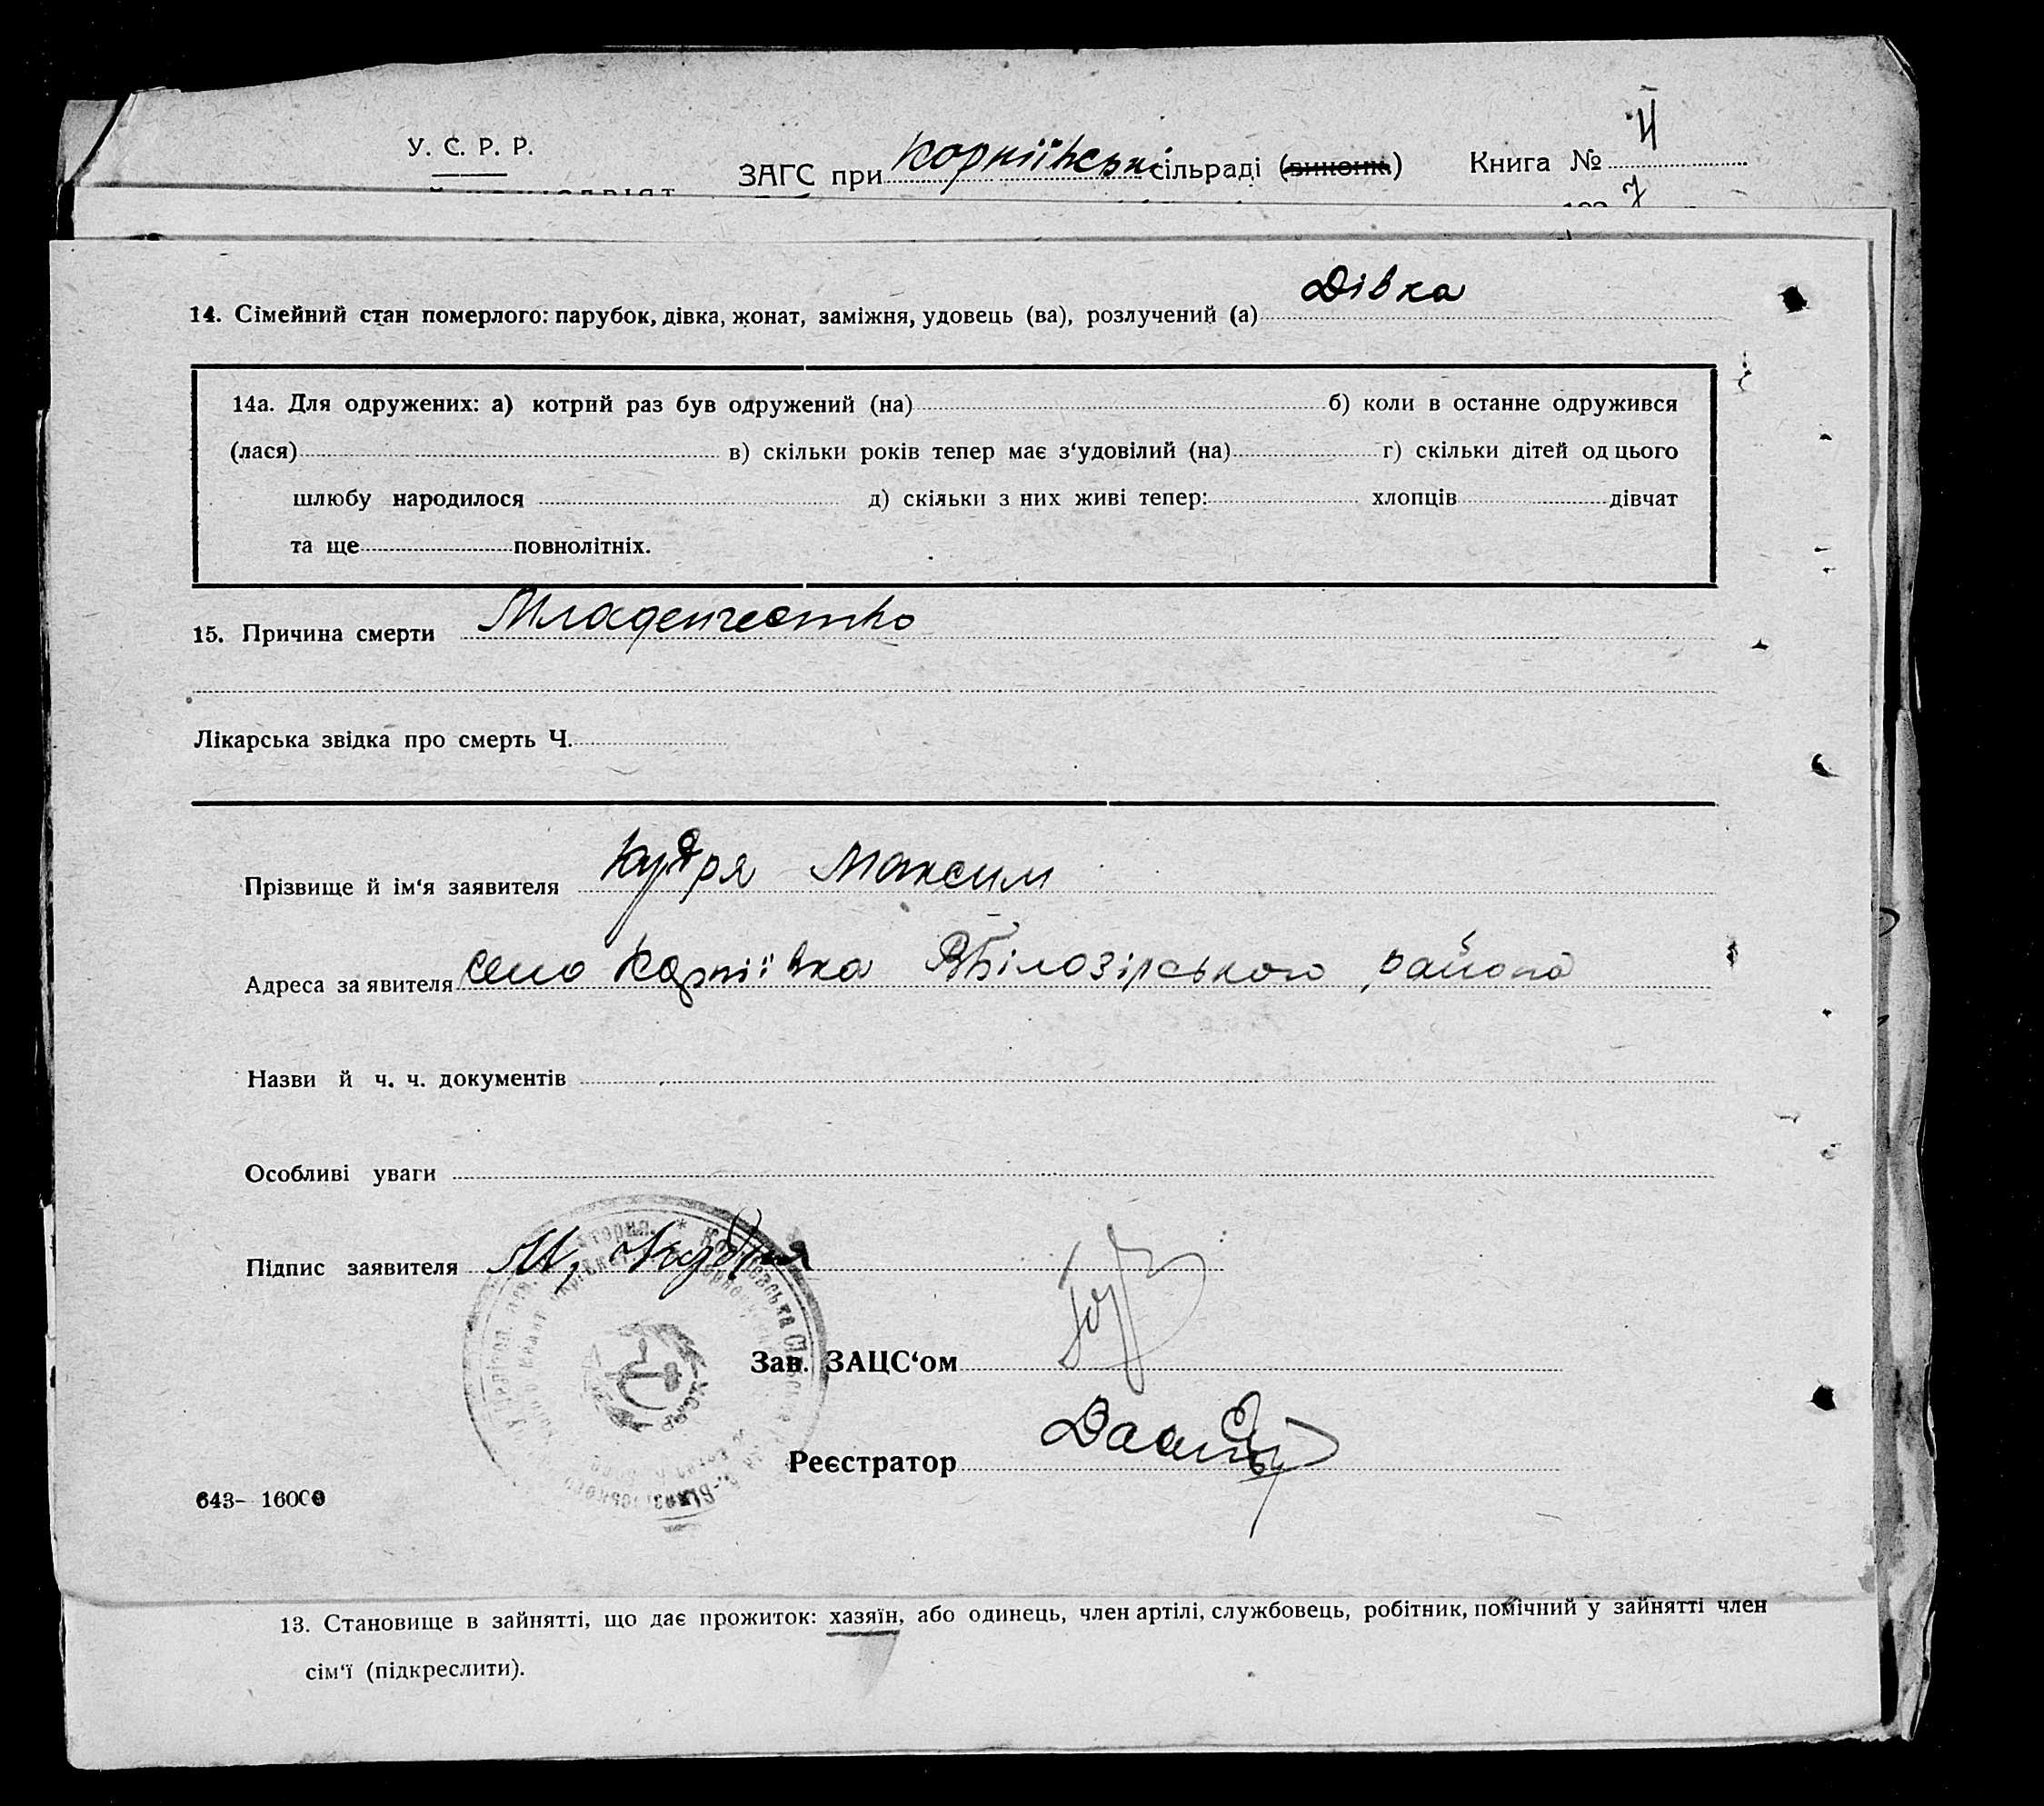 У. С. Р. Р.
ЗАГС при Корніївські сільраді (виконк.) Книга № II
14. Сімейний стан померлого: парубок, дівка, жонат, заміжня, удовець (ва), розлучений (а) Дівка
14а. Для одружених: а) котрий раз був одружений (на) б) коли в останне одружився
(лася) в) скільки років тепер має з‘удовілий (на) г) скільки дітей од цього
шлюбу народилося д) скільки з них живі тепер: хлопців дівчат
та ще повнолітніх.
15. Причина смерти Младенчество
Лікарська звідка про смерть Ч.
Прізвище й ім‘я заявителя Кудря Максим
Адреса заявителя село Корніівка ВБілозірського района
Назви й ч. ч. документів
Особливі уваги
Підпис заявителя М, Кудря
Зав. ЗАЦС‘ом
Реєстратор
643– 16000
13. Становище в зайнятті, що дає прожиток: хазяїн, або одинець, член артілі, службовець, робітник, помічний у зайнятті член
сім‘ї (підкреслити).